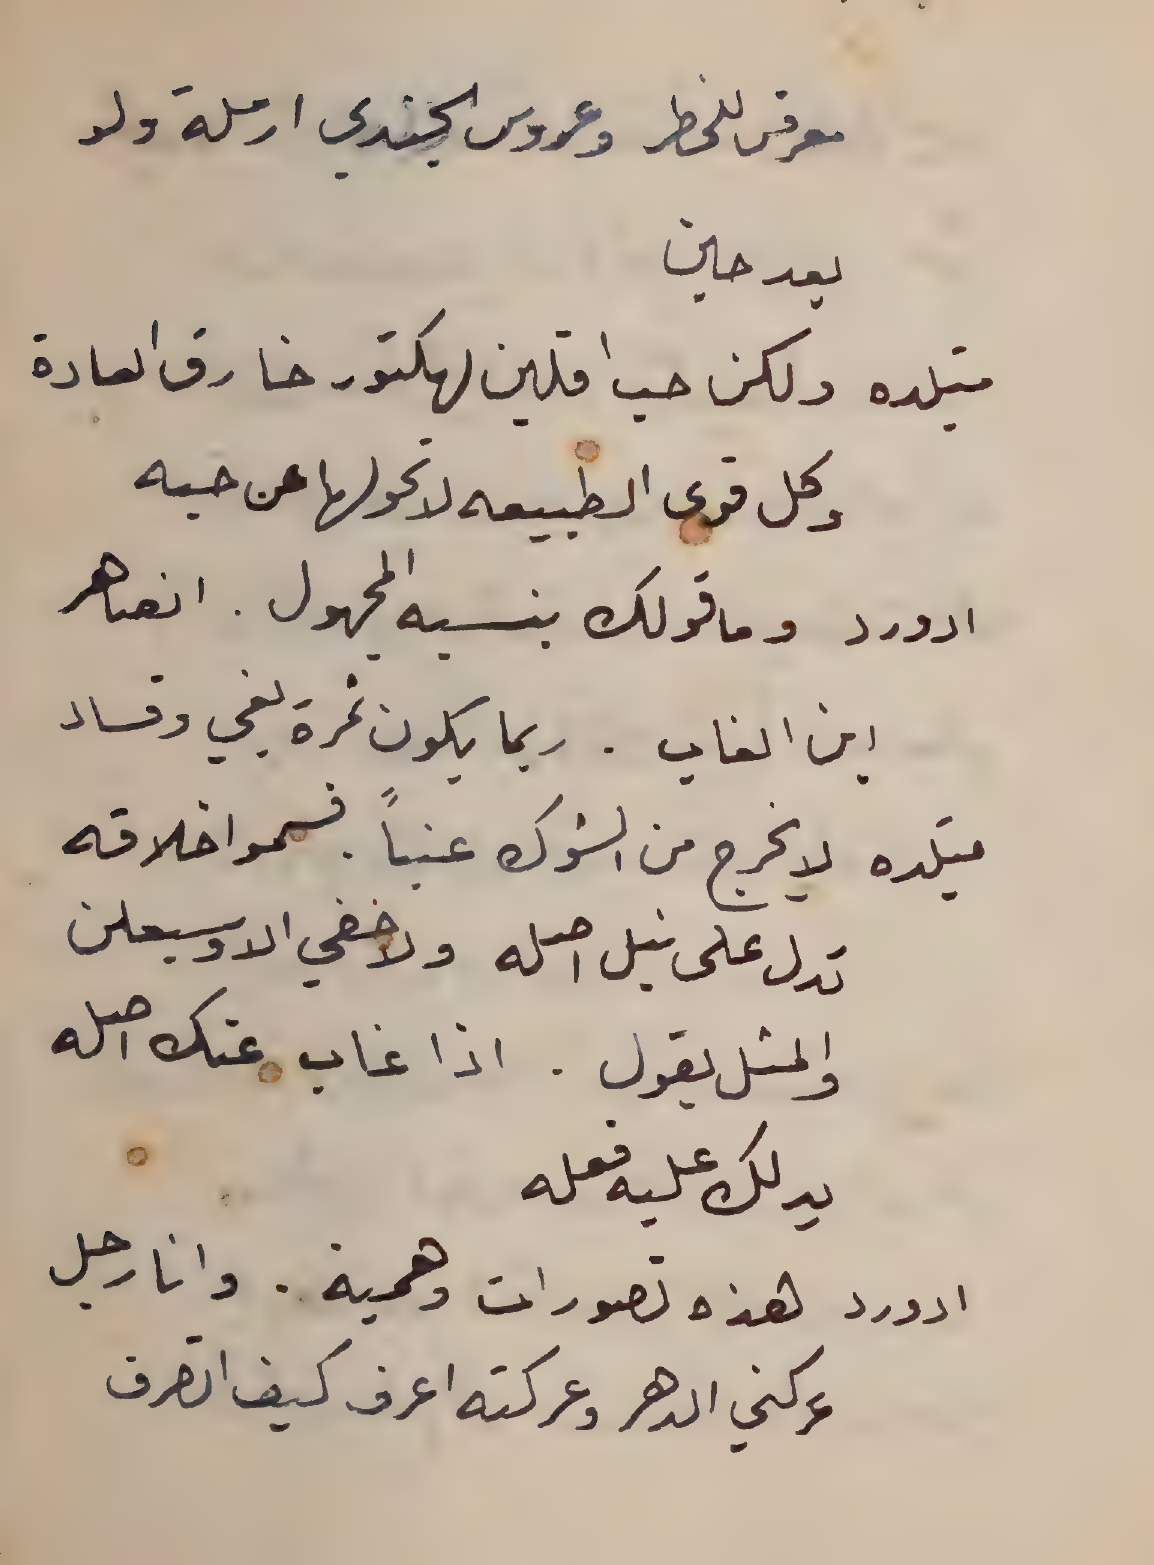 معرض للخطر وعروس الجندي ارملة ولو
بعد حين
متيلده ولكن حب اڤلين لهكتور خارق العادة
وكل قوى الطبيعه لا تحولها عن حبه
ادورد وما قولك بنسبه المجهول . انما هر
ابن الغاب . ربما يكون ثمرة بغي وفساد
متيلده لا يخرج من الشوك عنباً . فسمو اخلاقه
تدل على نبل اصله ولا خفي الا وسيعلن
والمثل يقول . اذا غاب عنك اصله
يدلك عليه فعله
ادورد هذه تصورات وهمية . وانا رجل
عركني الدهر وعركته اعرف كيف اتصرف